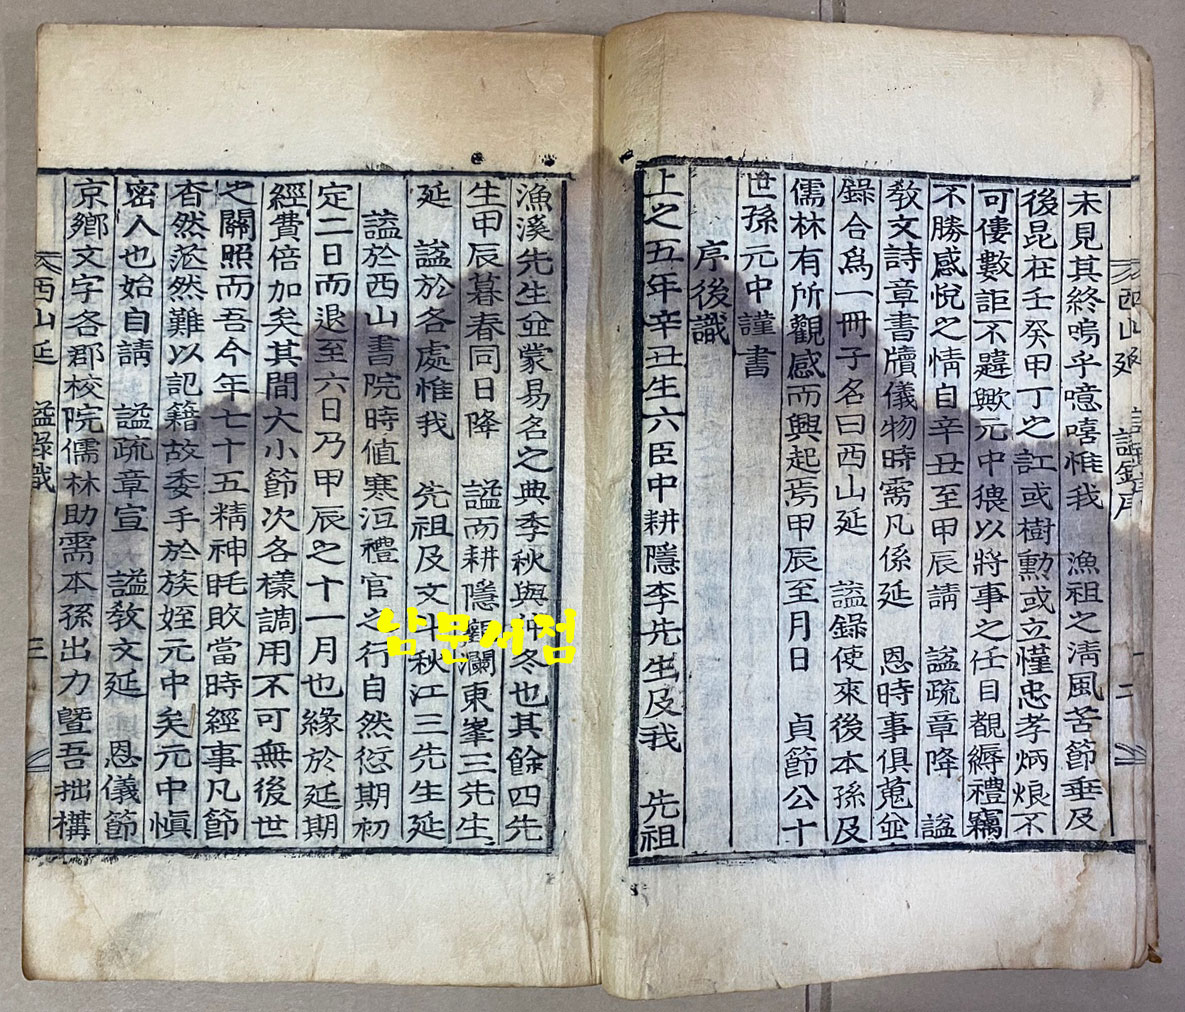 未見其終嗚乎噫嘻惟我 漁祖之淸風苦節垂及
後昆在壬癸甲丁之訌或樹勳或立慬忠孝炳烺不
可僂數詎不韙歟元中猥以將事之任目覩縟禮竊
不勝感悅之情自辛丑至甲辰請 謚疏章降 謚
敎文詩章書牘儀物時需凡係延 恩時事俱蒐並
錄合爲一冊子名曰西山延 謚錄使來後本孫及
儒林有所觀感而興起焉甲辰至月日 貞節公十
世孫元中謹書
序後識
上之五年辛丑生六臣中耕隱李先生及我 先祖
漁溪先生並蒙易名之典季秋與仲冬也其餘四先
生甲辰暮春同日降 謚而耕隱觀瀾東峯三先生
延 謚於各處惟我 先祖及文斗秋江三先生延
謚於西山書院時値寒沍禮官之行自然愆期初
定二日而退至六日乃甲辰之十一月也緣於延期
經費倍加矣其間大小節次各樣調用不可無後世
之關照而吾今年七十五精神眊敗當時經事凡節
杳然茫然難以記籍故委手於族姪元中矣元中愼
密人也始自請 謚疏章宣 謚敎文延 恩儀節
京鄉文字各郡校院儒林助需本孫出力曁吾拙構
西山延 謚錄序 二
西山延 謚錄識 三
남문서점